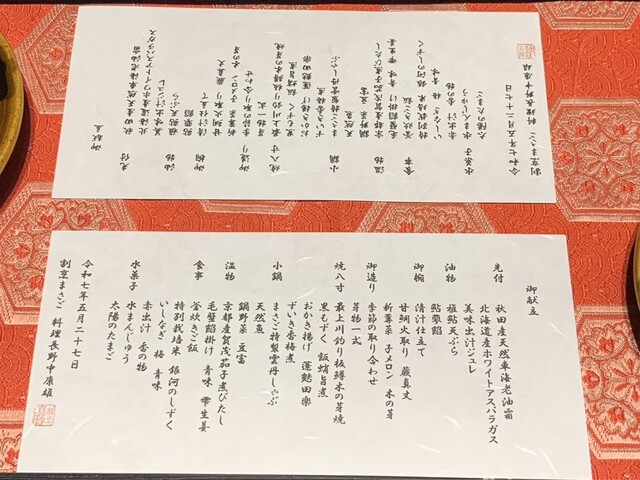 御献立
先付
秋田産天然車海老油霜
北海道産ホワイトアスパラガス
美味出汁ジュレ
油物
稚鮎天ぷら
鮎魚醤
御椀
清汁仕立て
甘鯛火取り 蕨真丈
新蓴菜 子メロン 木の芽
御造り
季節の取り合わせ
芽物一式
焼八寸
最上川釣り板鱒木の芽焼
おかき揚げ 蓬麩田楽
黒もずく 飯蛸旨煮
ずいき香梅煮
小鍋
まさご特製雲丹しゃぶ
天然魚
鍋野菜 豆富
温物
京都産賀茂茄子煮びたし
毛蟹餡掛け 青味 雫生姜
食事
釜炊きご飯
特別栽培米 銀河のしずく
いしなぎ 梅 青味
赤出汁 香の物
水菓子
水まんじゅう
太陽のたまご
令和七年五月二十七日
割烹まさご 料理長野中康雄